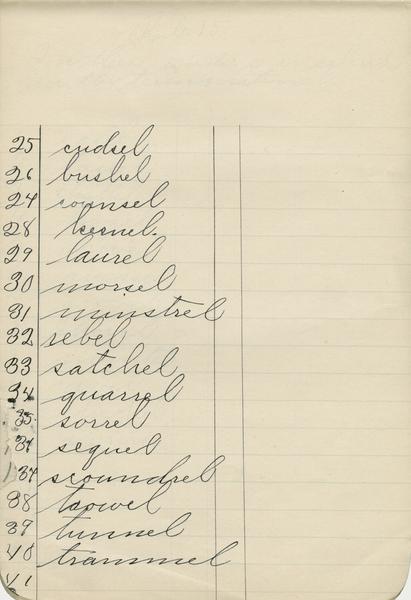 25 cudsel
26 bushel
24 counsel
28 kernel.
29 laurel
30 morsel
31 minstrel
32 rebel
33 satchel
34 quarrel
35. sorrel
37 sequel
37 scoundrel
38 trowel
39 tunnel
40 trammel
41